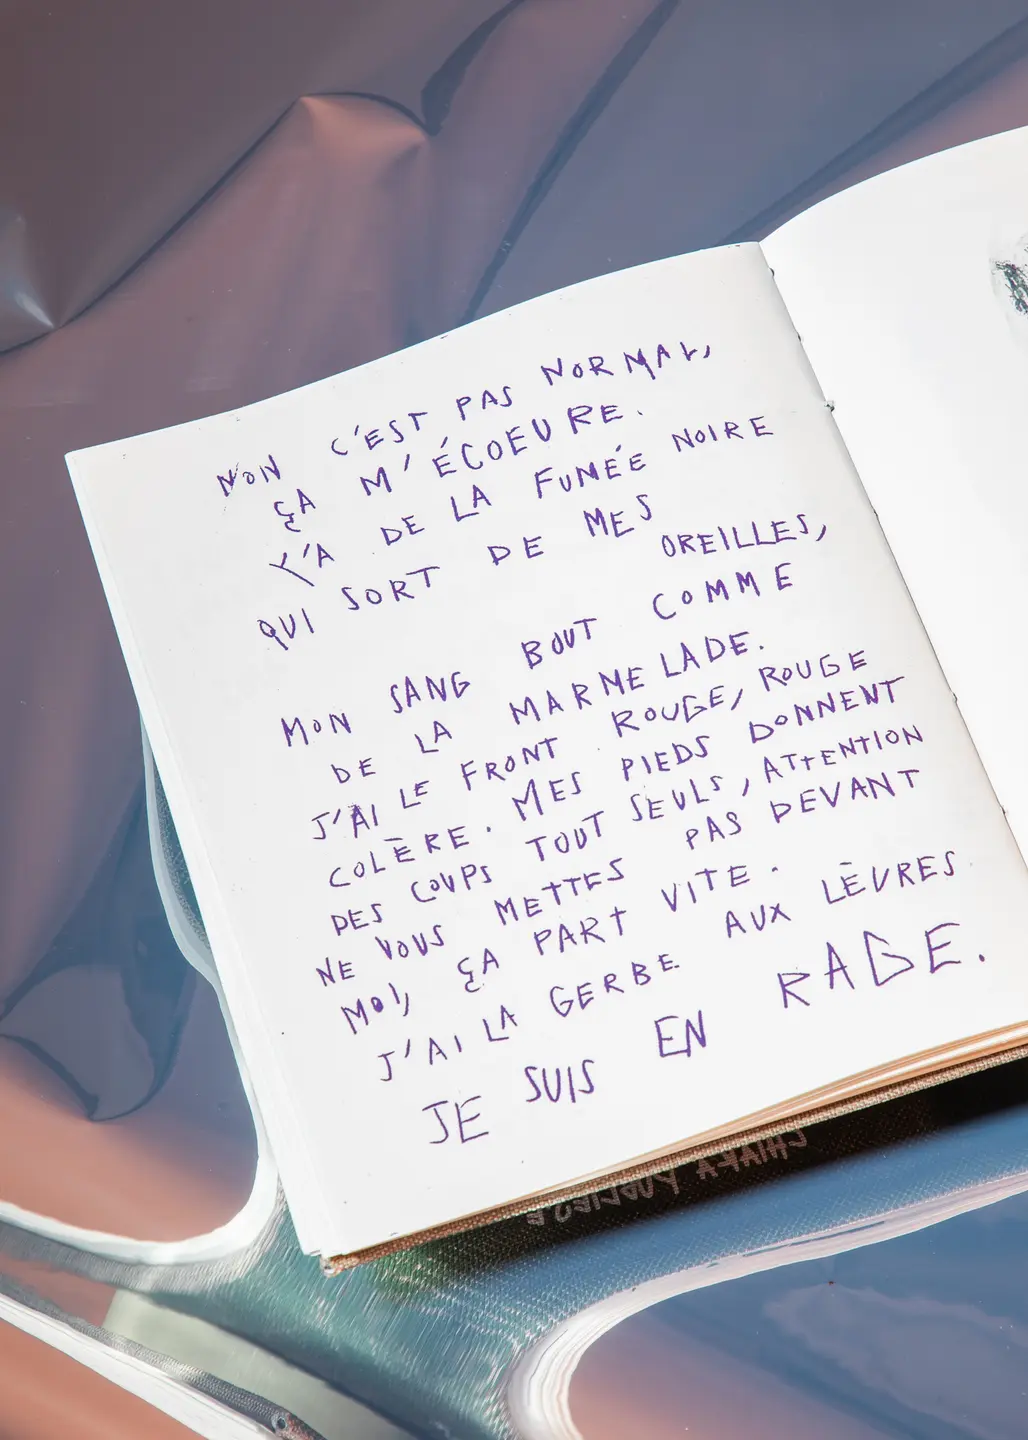 NON C'EST PAS NORMAL,
ÇA M'ÉCOEURE.
Y'A DE LA FUMÉE NOIRE
QUI SORT DE MES
OREILLES,
MON SANG BOUT COMME
DE LA MARMELADE.
J'AI LE FRONT ROUGE, ROUGE
COLÈRE. MES PIEDS DONNENT
DES COUPS TOUT SEULS, ATTENTION
NE VOUS METTES PAS DEVANT
MOI, ÇA PART VITE.
J'AI LA GERBE AUX LÈVRES
JE SUIS EN RAGE.